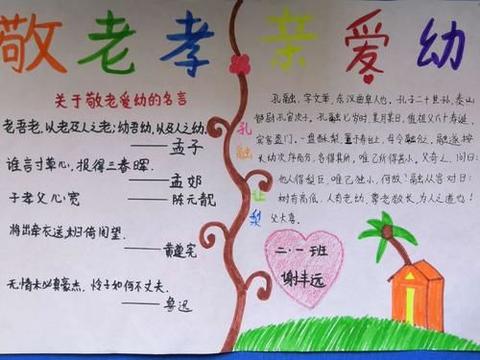 敬老孝亲爱幼
关于敬老爱幼的名言
老吾老，以老及人之老；幼吾幼，以及人之幼。
——孟子
谁言寸草心，报得三春晖。
——孟郊
子孝父心宽
——陈元靓
将出牵衣送，未归倚闾望。
——黄遵宪
无情未必真豪杰，怜子如何不丈夫。
——鲁迅
孔融让梨
孔融，字文举，东汉曲阜人也。孔子二十世孙，泰山
都尉孔宙次子。孔融七岁时，某月某日，值祖父六十寿诞，
宾客盈门。一盘酥梨，置于寿台上，母令融分。融遂按
长幼次序而分，各得其所，唯己所得甚小。父奇之，问曰：
他人得梨巨，唯己独小，何故？融从容对曰：
树有高低，人有老幼，尊老敬长，为人之道也！
父大喜。
二·一班
谢丰远